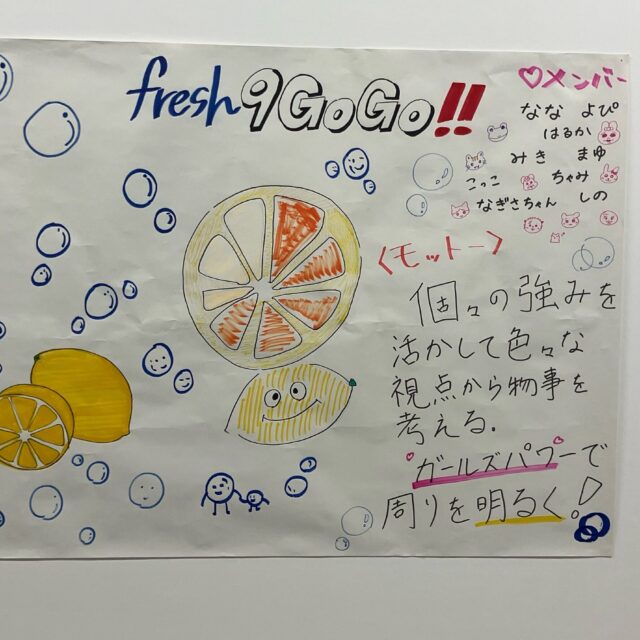 fresh 9GoGo!!
♡メンバー
なな よぴ
はるか
みき まゆ
こっこ ちゃみ
なぎさちゃん しの
<モットー>
個々の強みを
活かして色々な
視点から物事を
考える.
ガールズパワーで
周りを明るく!